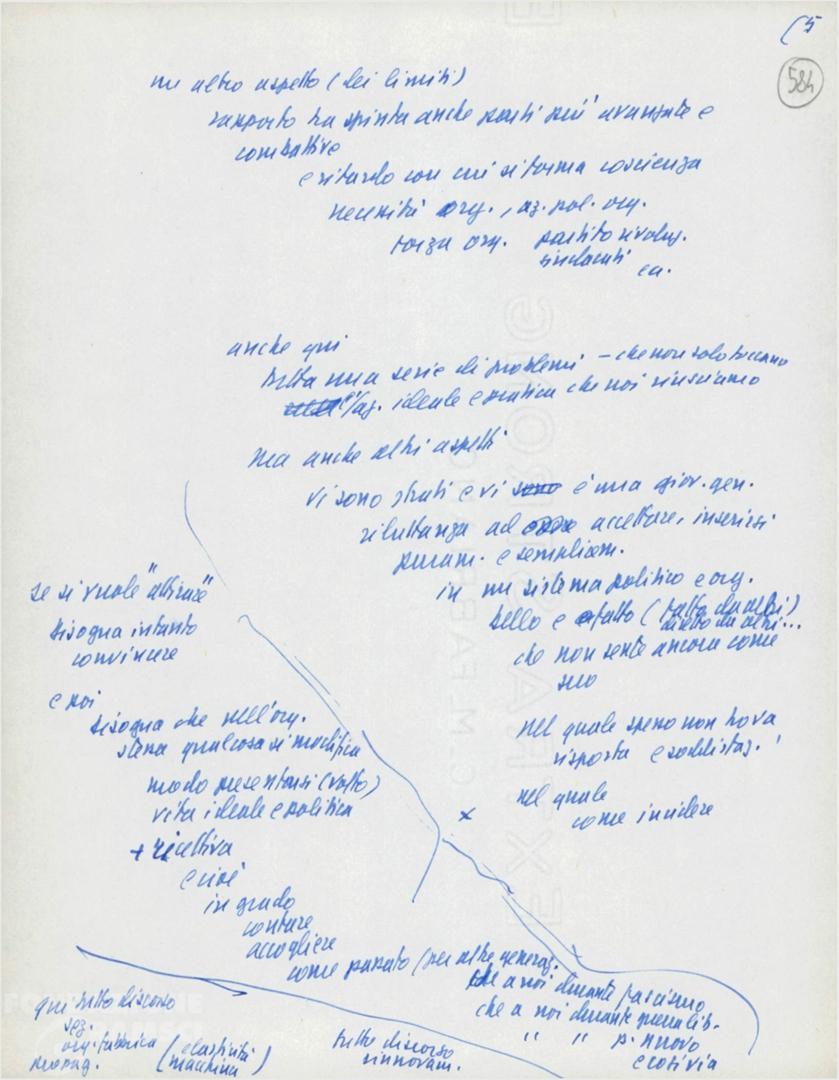 (5
584
un altro aspetto (dei limiti)
rapporto tra spinta anche parti più avanzate e
combattive
e ritardo con cui si forma coscienza
necessità org., az. pol. org.
forza org. partito rivoluz.
sindacati
ecc.
anche qui
tutta una serie di problemi – che non solo toccano
l'az. ideale e pratica che noi riusciamo
ma anche altri aspetti
vi sono strati e vi sono è una giov. gen.
riluttanza ad accettare, inserirsi
puram. e semplicem.
in un sistema politico e org.
bello e fatto (fatto da altri)
diretto da altri...
che non sente ancora come
suo
nel quale spesso non trova
risposta e soddisfaz.
nel quale
come incidere
x
se si vuole "attirare"
bisogna intanto
convincere
e poi
bisogna che nell'org.
stessa qualcosa si modifica
modo presentarsi (volto)
vita ideale e politica
+ ricettiva
e cioè
in grado
contare
accogliere
come passato (per altre generaz.
che a noi durante fascismo
che a noi durante guerra lib.
" " p. nuovo
e così via
qui tutto discorso
sez.
org. fabbrica
propag.
(elasticità
macchina)
tutto discorso
rinnovam.